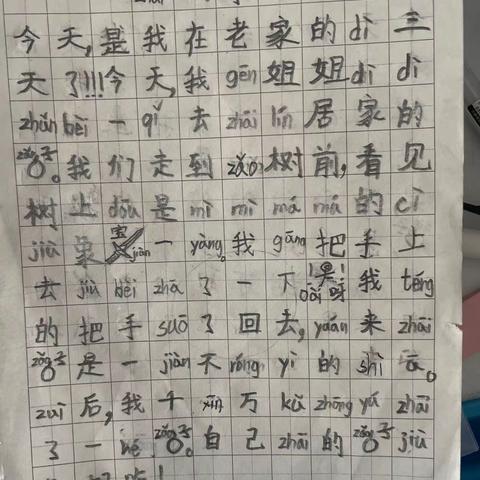 今天,是我在老家的dì三
天了!!!今天,我gēn姐姐dì di
zhǔn bèi一qǐ去zhāi lín居家的
zǎo子。我们走到zǎo树前,看见
树上dōu是mì mì má má的cì
jiù象宝jiàn一yàng。我gāng把手上
去jiù bèi zhā了一下!哎呀!我téng
的把手suō了回去,yuán来zhāi
zǎo子是一jiàn不róng yì的shì a。
zuì后,我千xīn万kǔ zhōng yú zhāi
了一hé zǎo子。自己zhāi的zǎo子jiù
好吃!